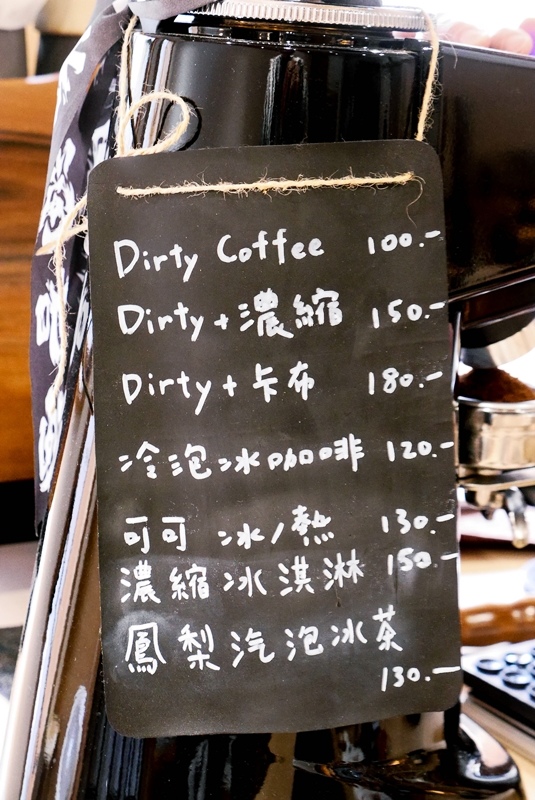 Dirty Coffee 100.-
Dirty+濃縮 150.-
Dirty+卡布 180.-
冷泡冰咖啡 120.-
可可 冰/熱 130.-
濃縮冰淇淋 150.-
鳳梨汽泡冰茶
130.-